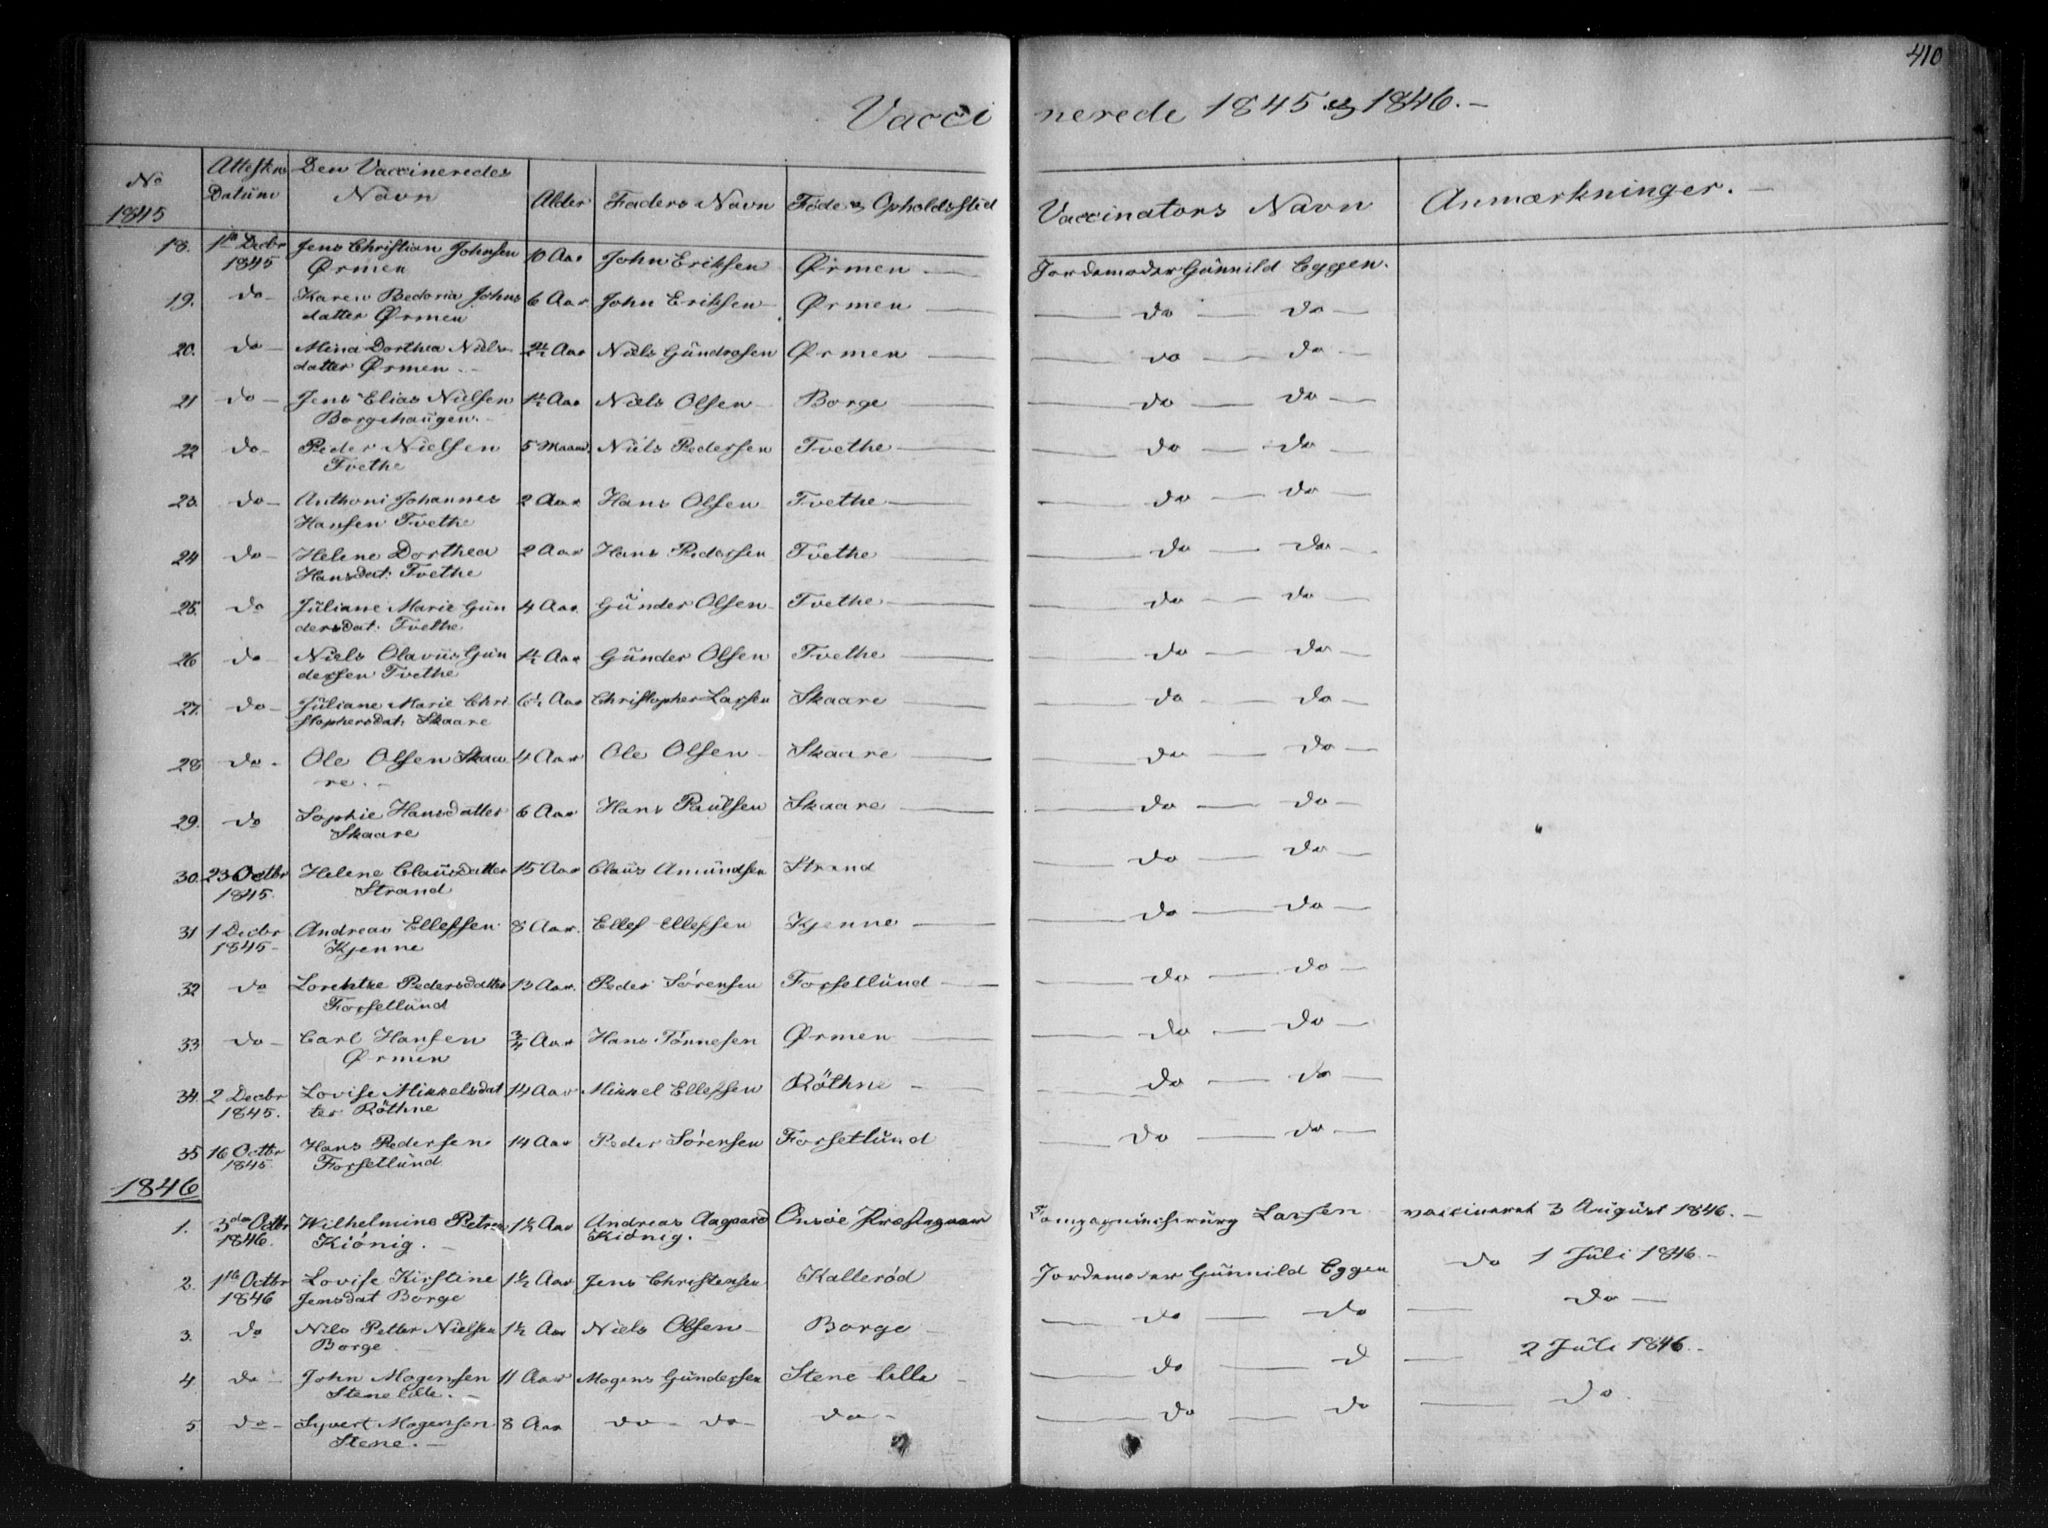 410
Vaccinerede 1845 og 1846.-
No 1845 | Attestens Datum | Den Vaccineredes Navn | Alder | Faders Navn | Føde og Opholdssted | Vaccinators Navn | Anmærkninger.-
18. | 1ste Decbr 1845 | Jens Christian Johnsen Ørmen | 10 Aar | John Eriksen | Ørmen | Jordemoder Gunnild Eggen.
19. | do | Karen Bedoria Johnsdatter Ørmen | 6 Aar | John Eriksen | Ørmen | do do
20. | do | Mina Dorthea Nielsdatter Ørmen | Aar | Niels Gundrosen | Ørmen | do do
21 | do | Jens Elias Nielsen Borgehaugen | 1½ Aar | Niels Olsen | Borge | do do
22 | do | Peder Nielsen Tvethe | 5 Maaned | Niels Pedersen | Tvethe | do do
23. | do | Anthoni Johannes Hansen Tvethe | 2 Aar | Hans Olsen | Tvethe | do do
24 | do | Helene Dorthea Hansdat: Tvethe | 2 Aar | Hans Pedersen | Tvethe | do do
25. | do | Juliane Marie Gundersdat: Tvethe | 4 Aar. | Gunder Olsen | Tvethe | do do
26 | do | Niels Olavus Gundersen Tvethe | 1½ Aar | Gunder Olsen | Tvethe | do do
27. | do | Juliane Marie Christophersdat: Skaare | 6½ Aar | Christopher Larsen | Skaare | do do
28 | do | Ole Olsen Skaare.- | 4 Aar | Ole Olsen | Skaare | do do
29. | do | Sophie Hansdatter Skaare | 6 Aar | Hans Paulsen | Skaare | do do
30. | 23 Octbr 1845. | Helene Clausdatter Strand | 15 Aar | Claus Amundsen | Strand | do do
31 | 1 Decbr 1845- | Andreas Ellefsen Kjenne | 8 Aar. | Ellef Ellefsen | Kjenne | do do
32 | do | Lorentze Pedersdatter Forsetlund | 13 Aar. | Peder Sørensen | Forsetlund | do do
33 | do | Carl Hansen Ørmen | ¾ Aar | Hans Tønnesen | Ørmen | do do
34. | 2 Decbr 1845. | Lovise Mikkelsdatter Röthne | 14 Aar | Mikkel Ellefsen | Röthne | do do
35 | 16 Octbr 1845. | Hans Pedersen Forsetlund | 14 Aar | Peder Sørensen | Forsetlund | do do
1846
1. | 3die Octbr 1846. | Wilhelmine Petrea Kiönig.- | 1½ Aar | Andreas Aagaard Kiönig. | Onsöe Præstegaar | Compagniechirurg Larsen | vaccineret 3 August 1846.-
2. | 1ste Octbr 1846 | Lovise Kirstine Jensdat Borge | 1½ Aar | Jens Christensen | Kallerød | Jordemoder Gunnild Eggen | do 1 Juli 1846-
3. | do | Nils Petter Nielsen Borge | 1½ Aar | Niels Olsen | Borge | do do | do
4 | do | John Mogensen Stene lille.- | 11 Aar | Mogens Gundersen | Stene lille | do d | 2 Juli 1846.-
5. | do | Syvert Mogensen Stene.- | 8 Aar | do do | do | do do | do